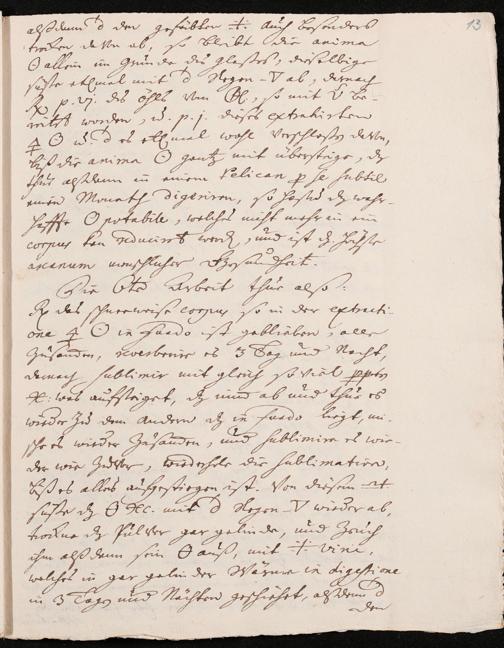 13
alßdann d den gefärbten auch besonders
trocken davon ab, so bleibt die anima
☉ allein im Grunde des Glases, dieselbige
süße etlmal mit d Regen-▽ ab, darnach
℞ p. vj. des Öhls vom so mit be-
reitet worden, u. p. j. dieses extrahirten
☉ u. d es etlmal wohl verschloßen
biß die anima ☉ gantz mit übersteige,
thue alßdann in einem Pelican p se subtil
einen Monath digeriren, so hastu d wahr-
haffte ☉ potabile, welches nicht mehr in ein
corpus kan reducirt werden, und ist d höchste
arcanum menschlicher Gesundheit.
Die 6te Arbeit thue also:
℞ das schneeweise corpus so in der extracti-
one ☉ in fundo ist geblieben, alles
zusammen, 3 Tag und Nacht,
darnach sublimir mit gleich so viel
was aufsteiget, d nimb ab und thue es
wieder zu dem andern d in fundo liegt, mi-
sche es wieder zusammen, und sublimire es wie-
der wie zuvor, wiederhole die sublimation,
biß es alles aufgestiegen ist. Von diesem
süße d mit d Regen-▽ wieder ab,
trockne d Pulver gar gelinde, und zeuch
ihm alßdann sein ☉ auß, mit vini,
welches in gar gelinder Wärme in digestione
in 3 Tagen und Nächten geschiehet, alßdann d
den